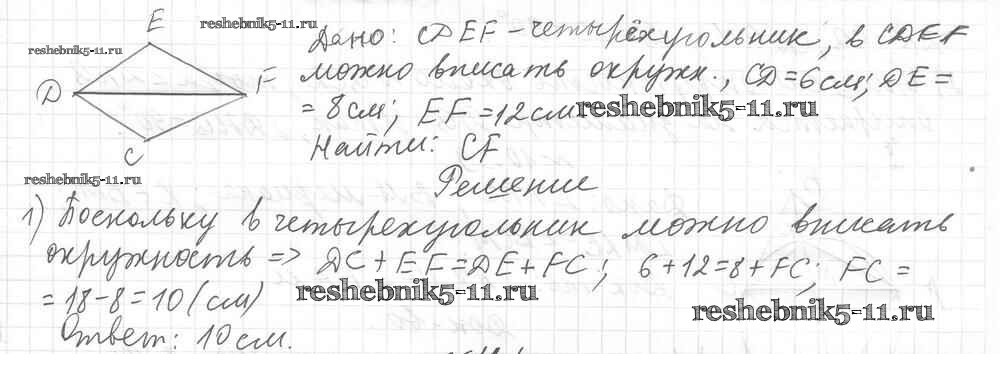 E
reshebnik5-11.ru
reshebnik5-11.ru
D
F
C
reshebnik5-11.ru
Дано: CDEF - четырёхугольник, в CDEF
можно вписать окружн., CD=6см; DE=
= 8см; EF=12см
reshebnik5-11.ru
Найти: CF
Решение
1) Поскольку в четырехугольник можно вписать
окружность => DC+EF=DE+FC; 6+12=8+FC; FC=
= 18-8=10 (см)
reshebnik5-11.ru
reshebnik5-11.ru
Ответ: 10см.